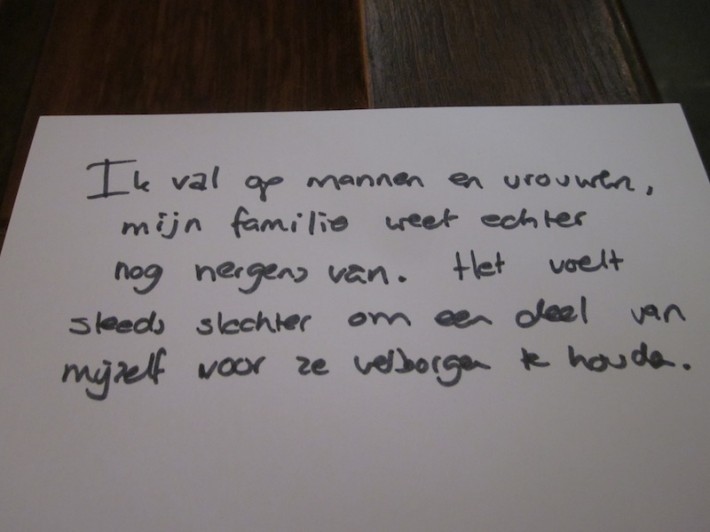 Ik val op mannen en vrouwen,
mijn familie weet echter
nog nergens van. Het voelt
steeds slechter om een deel van
mijzelf voor ze verborgen te houden.